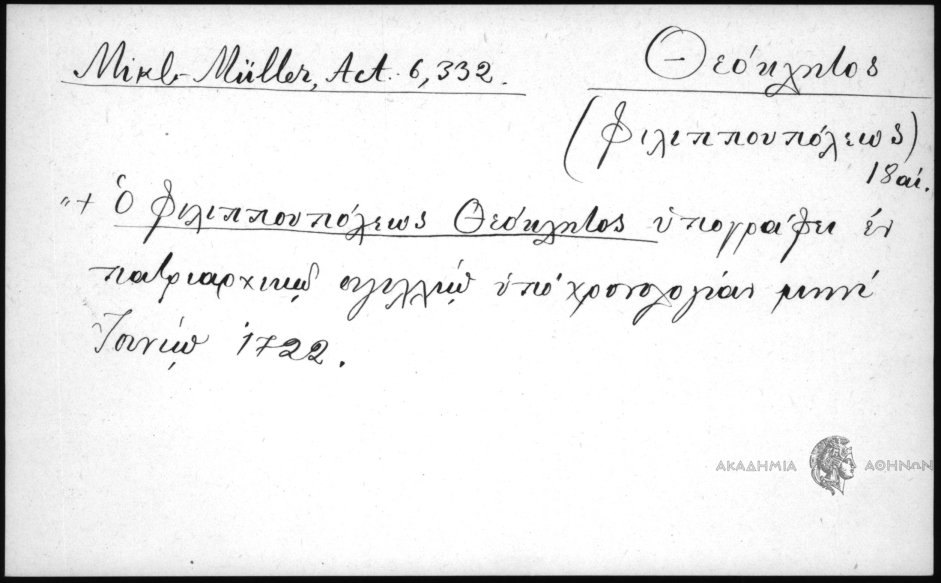 Mikl- Müller, Act. 6, 332.
Θεόκλητος
(Φιλιππουπόλεως)
18 αἰ.
"+ Ὁ Φιλιππουπόλεως Θεόκλητος ὑπογράφει ἐν
πατριαρχικῷ σιγιλλίῳ ὑπὸ χρονολογίαν μηνὶ
Ἰουνίῳ 1722.
ΑΚΑΔΗΜΙΑ ΑΘΗΝΩΝ